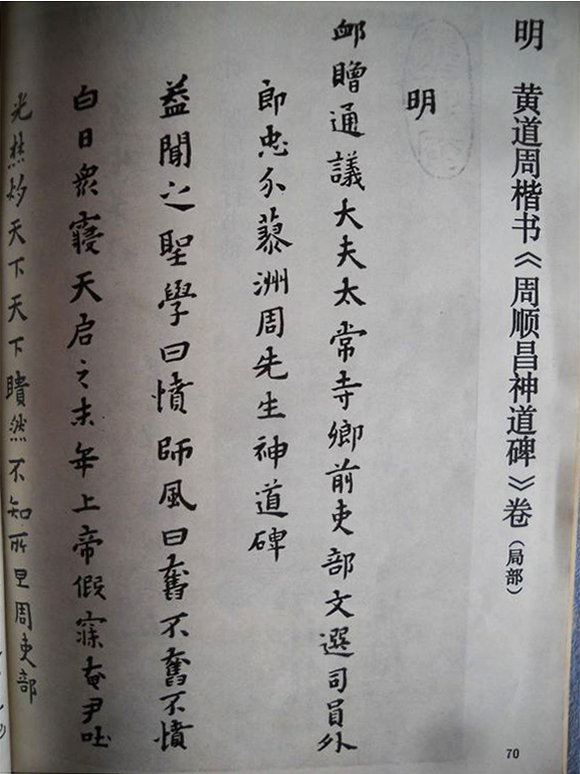 明 黄道周楷书《周顺昌神道碑》卷(局部)
明
卹贈通議大夫太常寺卿前吏部文選司員外
郎忠介蓼洲周先生神道碑
益聞之聖學曰憤師風曰奮不奮不憤
白日衆寢天启之末年上帝假寐奄尹吐
光燋灼天下天下瞶然不知所
周吏部
70